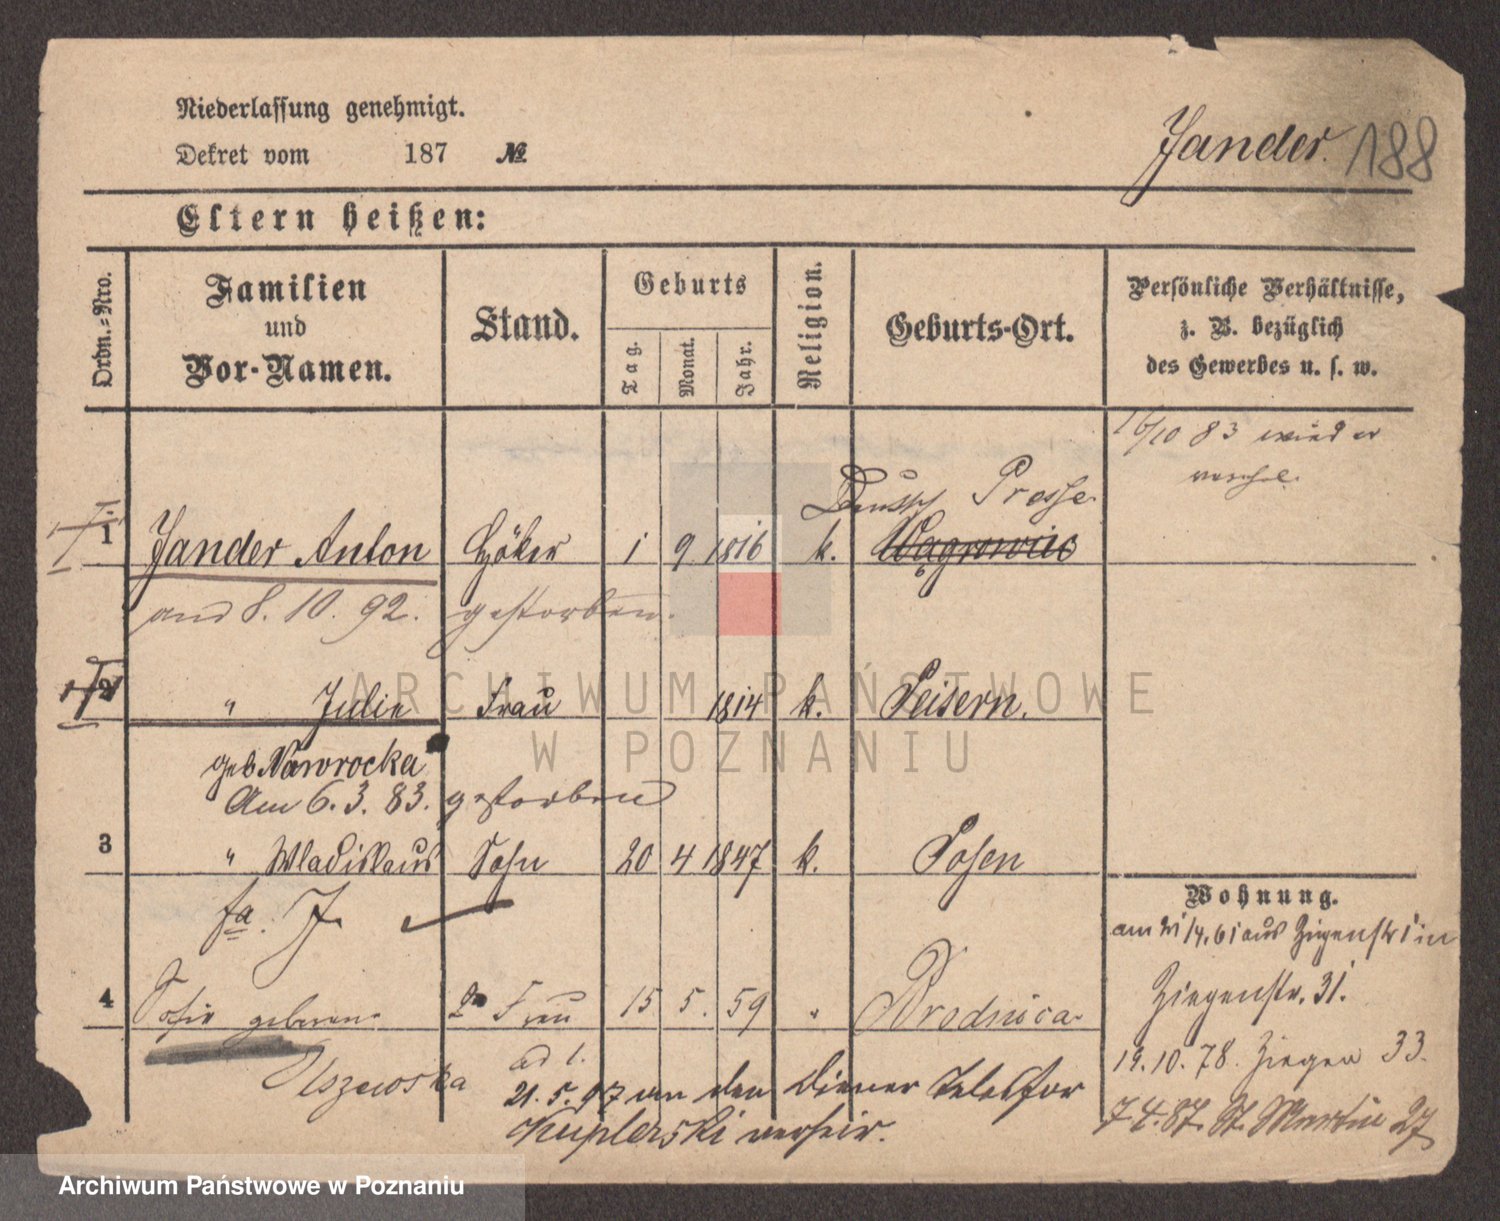 Niederlassung genehmigt.
Dekret vom 187 №
Jander. 188
Eltern heißen:
Ordn.-Nro.
Familien und Vor-Namen.
Stand.
Geburts
Tag. Monat. Jahr.
Religion.
Geburts-Ort.
Persönliche Verhältnisse,
z. B. bezüglich
des Gewerbes u. s. w.
16/10 83 wieder
Deutsch Presse
1 Jander Anton Höker 1 9 1816 k. Wągrowiec
8. 10. 92. gestorben.
2 " Julie Frau 1814 k. Peisern.
geb. Nawrocka
Am 6. 3. 83. gestorben
3 " Wladislaus Sohn 20 4 1847 k. Posen
fa. J.
Wohnung.
am 21/4. 61 aus Ziegenstr 1 in
Ziegenstr. 31.
4 Sofie geborene Frau 15 5. 59 " Brodnica
Uszewska
ad 1.
19. 10. 78. Ziegen 33.
21. 5. 97 an den Diener
7. 4. 87. St. Martin 27
ARCHIWUM PAŃSTWOWE
W POZNANIU
Archiwum Państwowe w Poznaniu